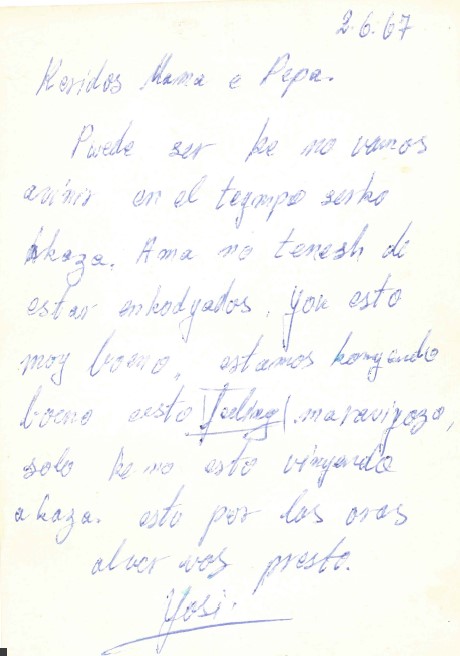 2.6.67
Keridos Mama e Pepa.
Puede ser ke no vamos
avinir en el teympo serko
akaza. Ama no tenesh de
estar enkodyados, you esto
moy boeno, estamos komyendo
boeno esto feeling maravigoza,
solo ke no esto vinyendo
akaza. esto por las oras
alver vos presto.
Yosi.